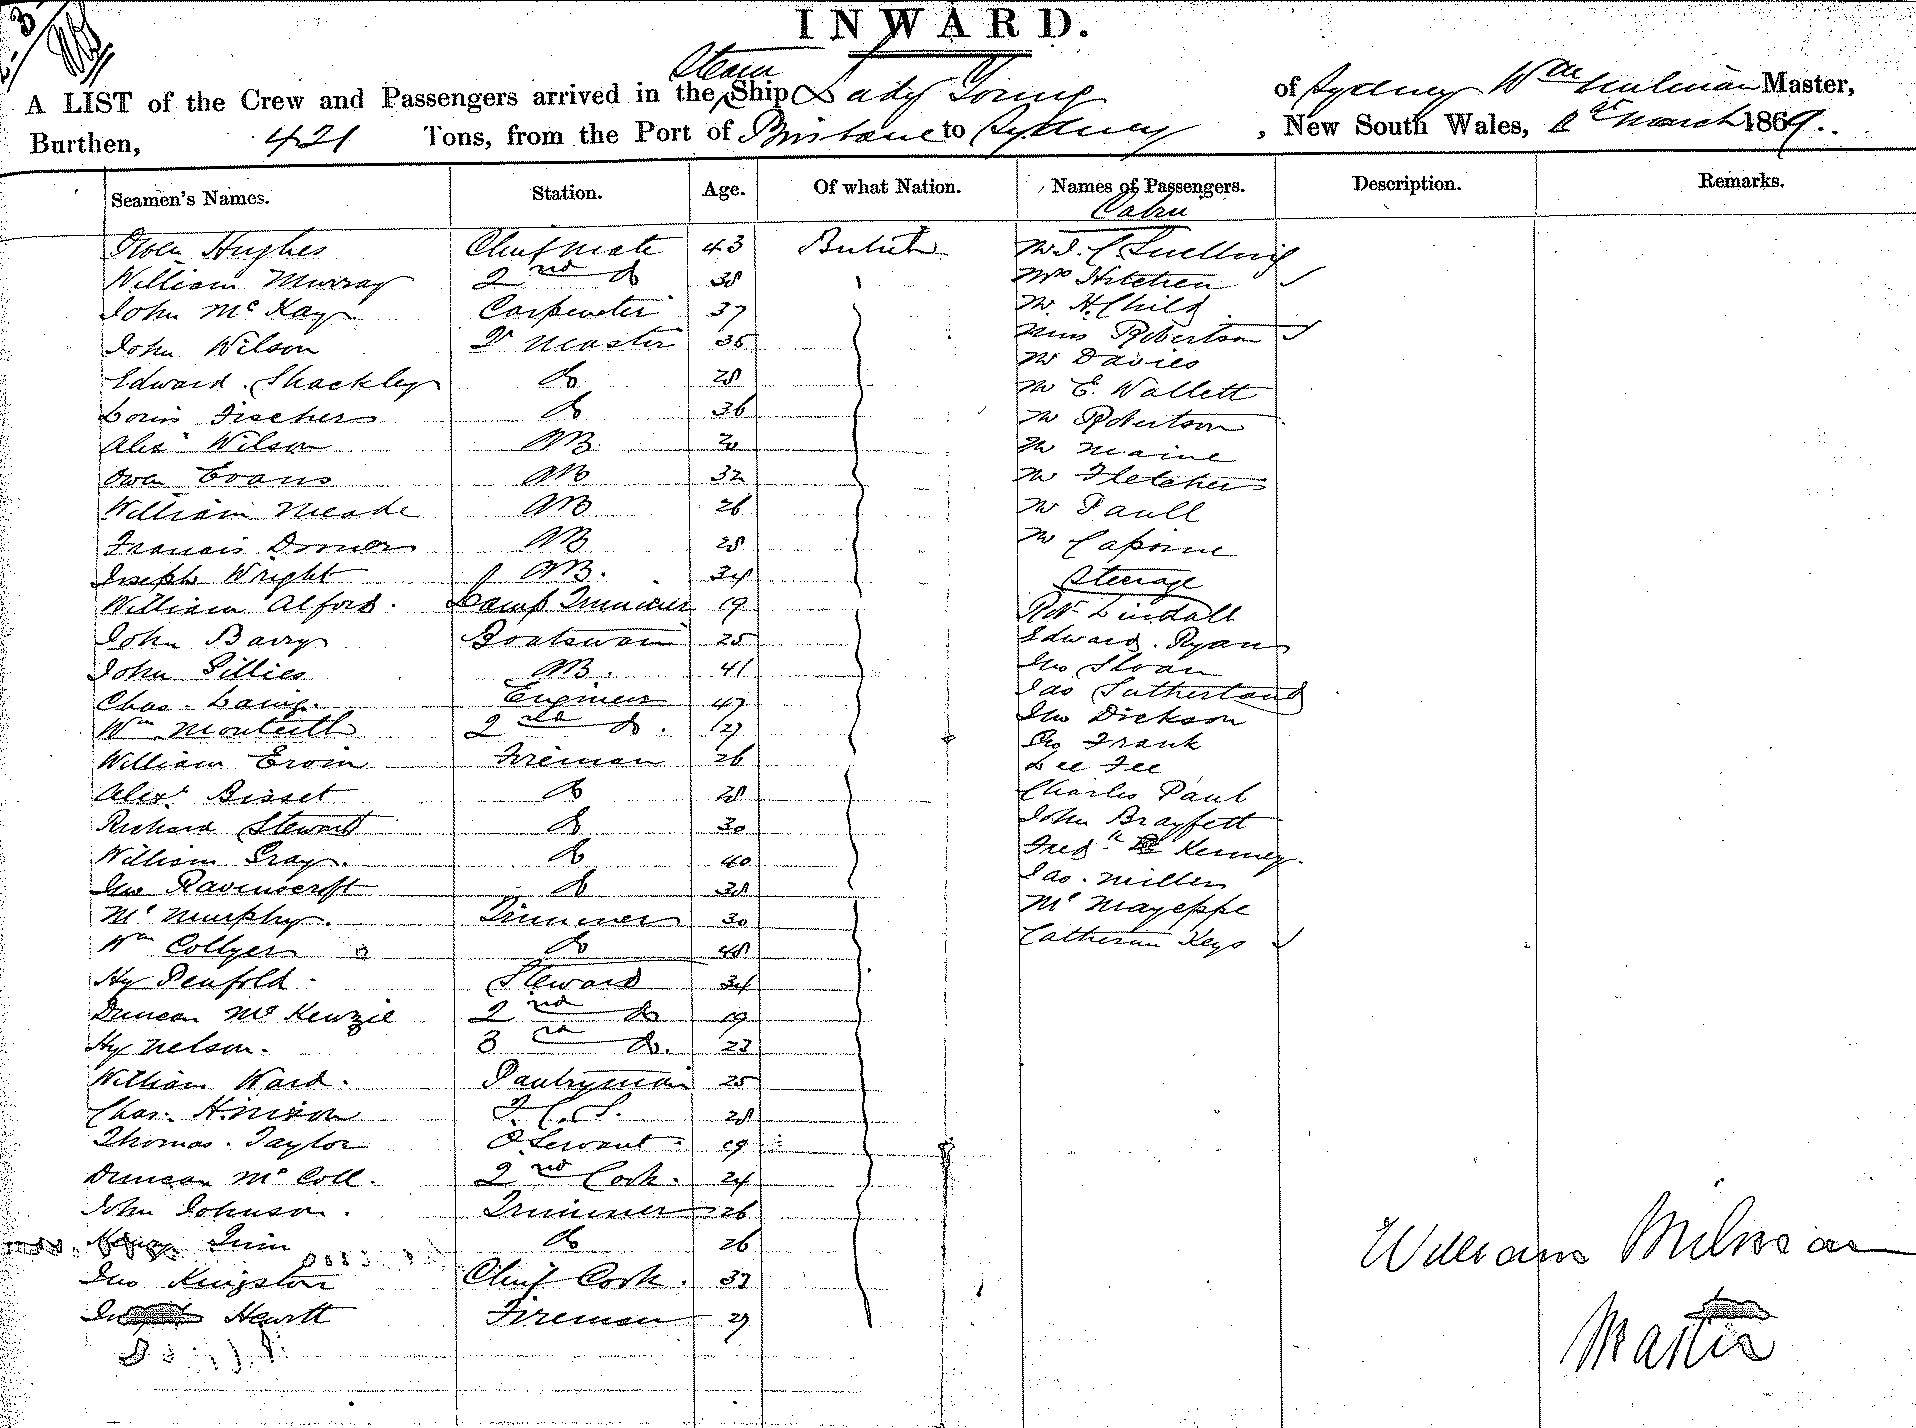 INWARD.
A LIST of the Crew and Passengers arrived in the Steam Ship Lady Young of Sydney Wm Milman Master,
Burthen, 421 Tons, from the Port of Brisbane to Sydney, New South Wales, March 1869.
Seamen's Names. Station. Age. Of what Nation. Names of Passengers. Description. Remarks.
Cabin
Owen Hughes Chief Mate 43 British Mr J. C. Snelling
William Murray 2nd do 38 Mrs Hitchen
John McKay Carpenter 37 Mr H. Child
John Wilson Qr Master 35 Miss Robertson
Edward Shackley do 28 Mr Davies
Louis Fischer do 36 Mr E. Wallett
Alexr Wilson AB 20 Mr Robertson
Owen Evans AB 32 Mr Maine
William Meade AB 26 Mr Fletcher
Francis AB 28 Mr Paull
Joseph Wright AB. 34 Mr
William Alford. Lamp Trimmer 19 Steerage
John Barry Boatswain 25 Robt Lindall
John Gillies AB. 41 Edward Ryan
Chas. Laing. Engineer 47 Jno Sloan
Wm Monteith 2nd do. 27 Jas Sutherland
William Ervin Fireman 26 Jno Dickson
Alexr Bisset do 28 Frank
Richard Stewart do 30 Lee Fee
William Gray. do 40 Charles Paul
Jno Ravenscroft do 38 John Brayfett
Mc Murphy. Trimmer 30 Fredk Kenney.
Wm Collyer do 48 Jas. Miller
Hy Penfold. Steward 34 Mc Mayeppe
Duncan McKenzie 2nd do 19 Catherine Keys
Hy Nelson. 3rd do. 23
William Ward. Pantryman 25
Chas. Hinison F. C. S. 28
Thomas Taylor O. Servant 19
Duncan McColl. 2nd Cook. 24
John Johnson. Trimmer 26
Quin do 26
Jno Kingston Chief Cook. 37
Hewitt Fireman 27
William Milman
Master